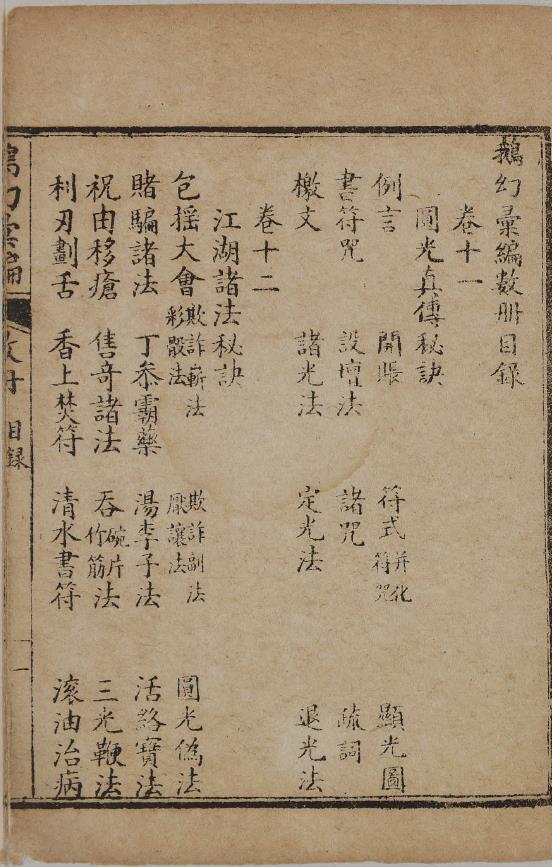 鵝幻彙編数册目録
卷十一
圓光真傳秘訣
例言 開賬 符式 并化符咒 顯光圖
書符咒 設壇法 諸咒 疏詞
檄文 諸光法 定光法 退光法
卷十二
江湖諸法秘訣
包揺大會 欺詐嶄法 彩骰法 欺詐副法 厭讓法 圓光偽法
賭騙諸法 丁叅霸藥 湯李子法 活絡寶法
祝由移瘡 售奇諸法 吞碗片竹筋法 三光鞭法
利刃劃舌 香上焚符 清水書符 滚油治病
目録
一